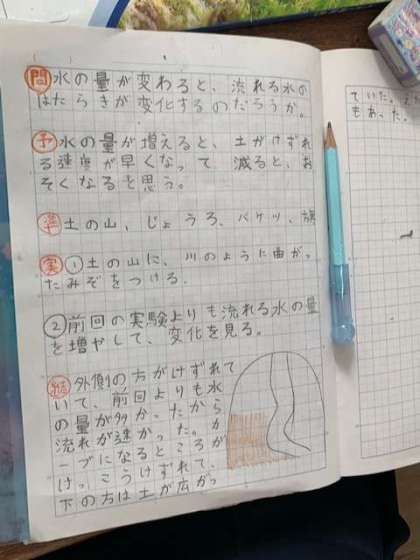 問 水の量が変わると、流れる水の
はたらきが変化するのだろうか。
予 水の量が増えると、土がけずれ
る速度が早くなって、減ると、お
そくなると思う。
準 土の山、じょうろ、バケツ、旗
実 ①土の山に、川のように曲が
たみぞをつける。
②前回の実験よりも流れる水の量
を増やして、変化を見る。
結 外側の方がけずれて
いて、前回よりも水
の量が多かったから
流れが速かった。カ
ーブになるところが
けっこうけずれて、
下の方は土が広がっ
ていた。
もあった。